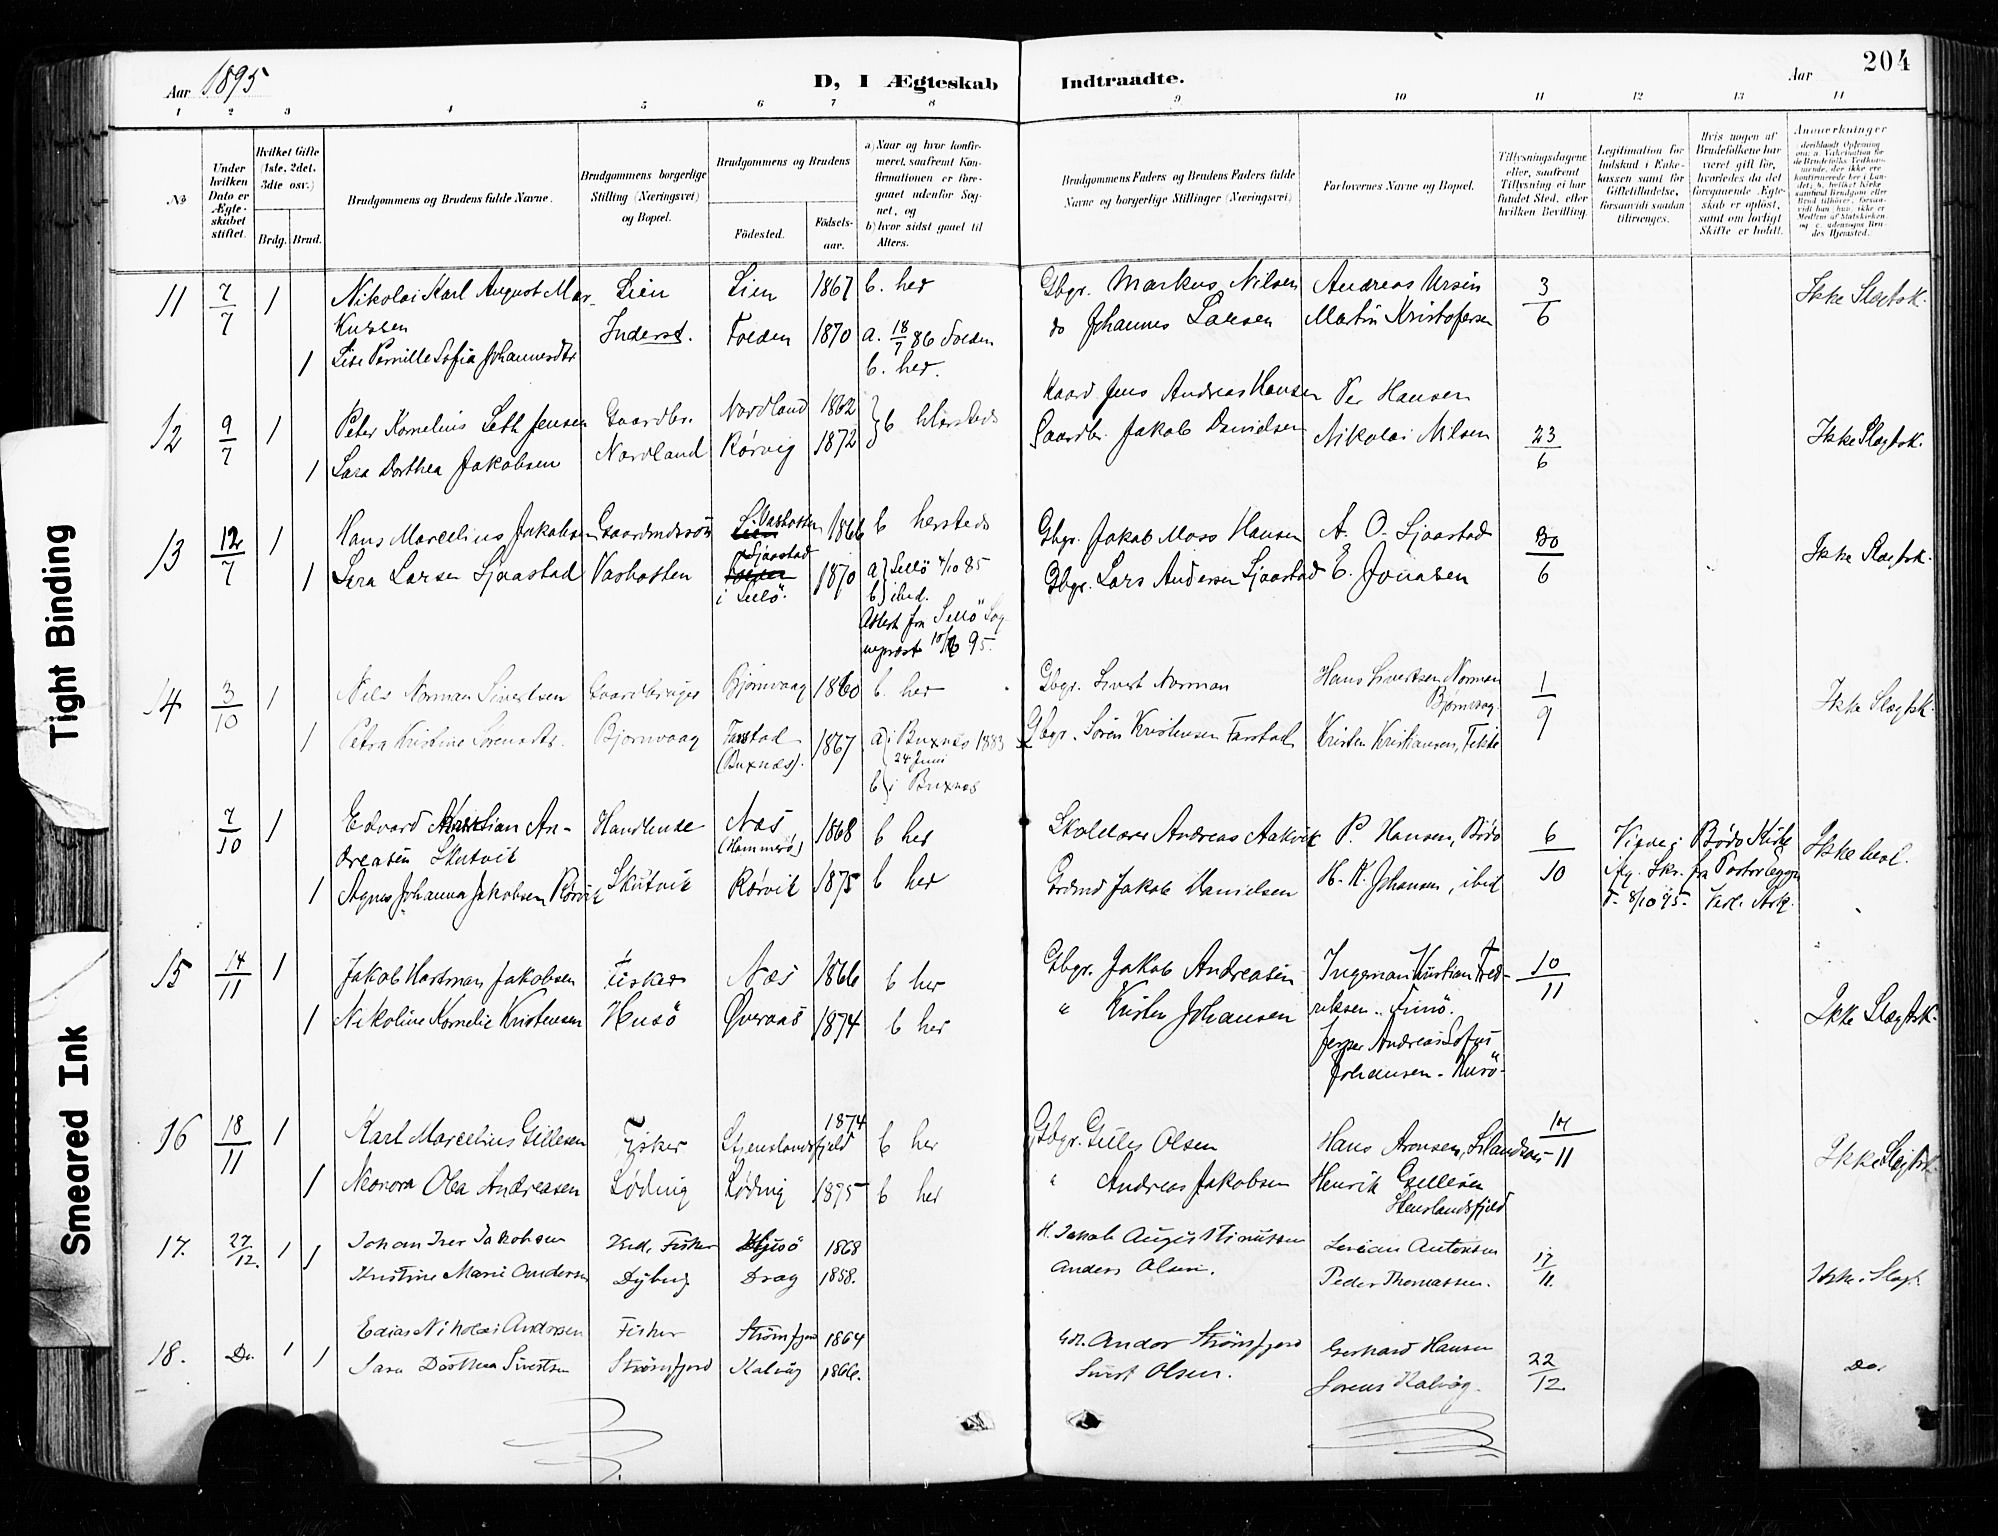 204
Aar 1895
D, I Ægteskab Indtraadte.
Aar
1 2 3 4 5 6 7 8 9 10 11 12 13 14
№
Under hvilken Dato er Ægteskabet stiftet.
Hvilket Gifte (1ste, 2det, 3die osv.)
Brdg. Brud.
Brudgommens og Brudens fulde Navne.
Brudgommens borgerlige Stilling (Næringsvei) og Bopæl.
Brudgommens og Brudens
Fødested.
Fødselsaar.
a) Naar og hvor konfirmeret, saafremt Konfirmationen er foregaaet udenfor Sognet, og
b) hvor sidst gaaet til Alters.
Brudgommens Faders og Brudens Faders fulde Navne og borgerlige Stillinger (Næringsvei)
Forlovernes Navne og Bopæl.
Tillysningsdagene eller, saafremt Tillysning ei har fundet Sted, efter hvilken Bevilling.
Legitimation for Indskud i Enkekassen samt for Giftetilladelse, forsaavidt saadan tiltrænges.
Hvis nogen af Brudefolkene har været gift før, hvorledes da det foregaaende Ægteskab er opløst, samt om lovligt Skifte er holdt.
Anmerkninger
11 7/7 1 Nikolai Karl August Mar- Lien Lien 1867 b. her Gbgr. Markus Nilsen Andreas Ursin 3/6 Ikke Slegtsk.
kussen Inderst. Folden 1870 a. 18/7 86 Folden do Johannes Larsen Matin Kristofersen
1 Lise Pernille Sofia Johannesdtr b. her.
12 9/7 1 Peter Kornelius Seth Jensen Gaardbr. Nordland 1862 } b Hersteds Jens Andreas Hansen Per Hansen 23/6 Ikke Slægtsk.
1 Sara Dorthea Jakobsen Nordland Rørvig 1872 Gaardbr. Jakob Danielsen Nikolai Nilsen
13 12/7 1 Hans Marcelius Jakobsen Gaardmdssön Vashosten 1866 b hersteds Gbgr. Jakob Moss Hansen A. O. Sjaastad 30/6 Ikke Slægtsk.
1 Larsen Sjaastad Vashosten Sjaastad i Sellö. 1870 a) Sellö 4/10 85 Gbgr. Lars Andersen Sjaastad E. Jonasen
b) ibid.
Attest fra Sellö Sog
nepræst 10/6 95.
14 3/10 1 Nils Norman Sivertsen Gaardbruger Bjornvaag 1860 b. her Gbgr. Sivert Norman Hans Sivertsen Norman 1/9 Ikke Slægtsk.
Bjørnvaag.
1 Petra Kristine Sorensdtr. Bjornvaag Farstad (Buxnæs). 1867 a) i Buxnæs 1883 Gbgr. Sören Kristensen Farstad Kristen Kristiansen,
24 Juni
b) i Buxnæs
7/10 1 Edvard Kristian An- Handlende Næs (Hammerø) 1868 b her Andreas Aakvik P. Hansen, Bodø 6/10 Viede i Bodø Kirke Ikke besl.
dreasen Skutvik ifg. Skr. fra Pastor
1 Agnes Johanna Jakobsen Rörvik Skutvik Rörvik 1875 b her Grdmd Jakob Danielsen H. K. Johansen, ibid 8/10 95.
15 14/11 1 Jakob Hartman Jakobsen Fisker Næs 1866 b her Gbgr. Jakob Andreasen Ingeman Kristian Fred- 10/11
1 Nikoline Kornelie Kristensen Husö Øveraas 1874 b her " Kristen Johansen riksen Ikke Slægtsk.
Jesper Andreas Sofus
Johansen - Husö
16 18/11 1 Karl Marcelius Gillesen Fisker Stenslandsfjeld 1874 b her Gbgr. Gilles Olsen Hans Aronsen, 11 Ikke Slægtsk.
1 Neonora Olea Andreasen Løding Løding 1875 b her " Andreas Jakobsen Henrik Gillesen
Stenslandsfjeld
17. 27/12. 1 Johan Iver Jakobsen Fisker Husö 1868 Jakob August Lorian Antonsen 17/11. Ikke Slagt.
1 Kristine Marie Andersen Dyberg Drag 1858. Anders Olsen. Peder Thomassen.
18. Do. 1 Edias Nikolai Andersen Fisker Strömfjord 1864 Andor Strömsfjord Gerhard Hansen 22/12. Do.
1 Sara Dorthea Sivertsen Strömsfjord Kalvåg 1866. Sivert Olsen. Sorens Kalvåg.
Tight Binding
Smeared Ink